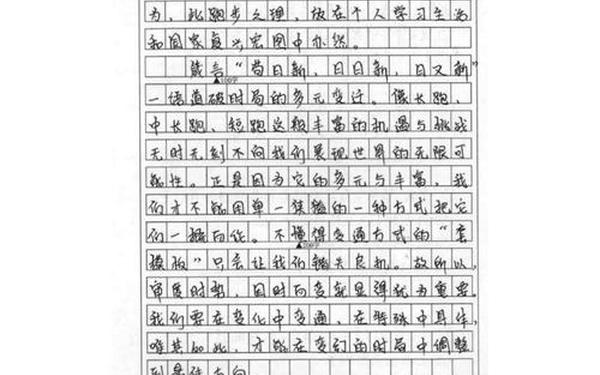 为，此跑步之理，放在个人学习生活
和国家复兴宏图中亦然。
箴言“苟日新，日日新，日又新”
▲100字
一语道破时局的多元变迁。像长跑、
中长跑、短跑这般丰富的机遇与挑战
无时无刻不向我们展现世界的无限可
能性。正是因为它的多元与丰富，我
们才不能用单一狭隘的一种方式把它
们一概而论。不懂得变通方式的“套
▲200字
模板”只会让我们错失良机。故所以，
审度时势，因时而变就显得犹为重要。
我们要在变化中变通，在特殊中具体，
唯其如此，才能在变幻的时局中调整
到最佳方向